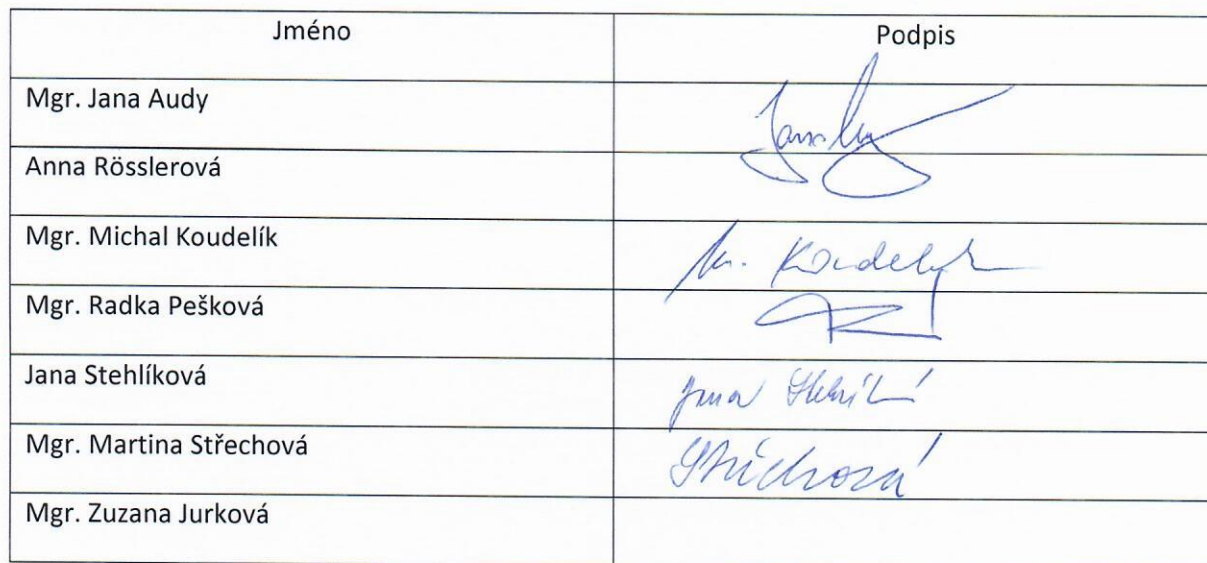 Jméno Podpis
Mgr. Jana Audy
Anna Rösslerová
Mgr. Michal Koudelík M. Koudelík
Mgr. Radka Pešková
Jana Stehlíková Jana
Mgr. Martina Střechová Střechová
Mgr. Zuzana Jurková